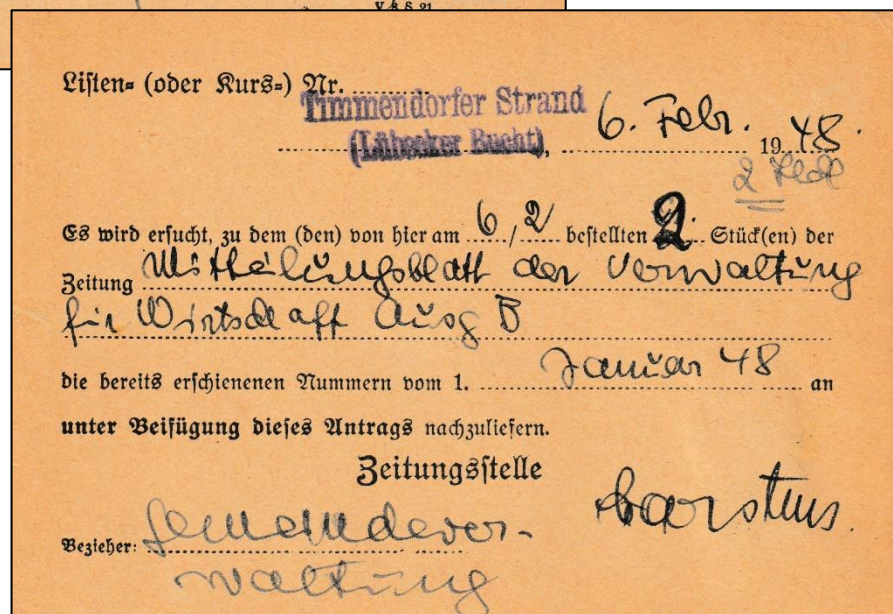 V § 5 21
Listen= (oder Kurs=) Nr. ............
Timmendorfer Strand
(Lübecker Bucht), 6. Febr. 19 48.
Es wird ersucht, zu dem (den) von hier am 6/2 bestellten 2 Stück(en) der
Zeitung Mitteilungsblatt der Verwaltung
für Wirtschaft Ausg B
die bereits erschienenen Nummern vom 1. Januar 48 an
unter Beifügung dieses Antrags nachzuliefern.
Zeitungsstelle
Carstens.
Bezieher: Gemeindever-
waltung